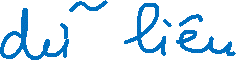 dữ liêu